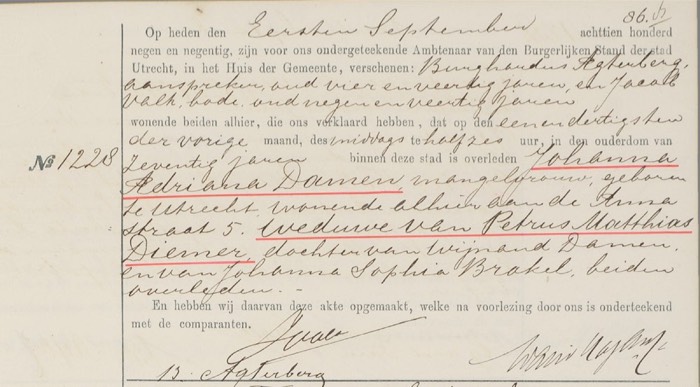 86.
Op heden den Eersten September achttien honderd
negen en negentig, zijn voor ons ondergeteekende Ambtenaar van den Burgerlijken Stand der stad
Utrecht, in het Huis der Gemeente, verschenen: Burghardus Agterberg,
aanspreker, oud vier en veertig jaren, en Jacob
Valk, bode, oud negen en veertig jaren
wonende beiden alhier, die ons verklaard hebben, dat op den een en dertigsten
der vorige maand, des middags te half zes uur, in den ouderdom van
No 1228 zeventig jaren binnen deze stad is overleden Johanna
Adriana Damen, mangelvrouw, geboren
te Utrecht, wonende alhier aan de Anna
straat 5. Weduwe van Petrus Matthias
Diemer, dochter van Wijnand Damen,
en van Johanna Sophia Brakel, beiden
overleden. -
En hebben wij daarvan deze akte opgemaakt, welke na voorlezing door ons is onderteekend
met de comparanten.
B. Agterberg